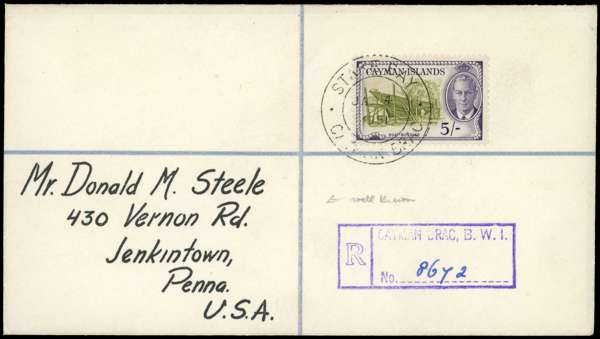 CAYMAN ISLANDS
5/-
Mr. Donald M. Steele
430 Vernon Rd.
Jenkintown,
Penna.
U.S.A.
R
CAYMAN BRAC, B. W. I.
No. 8642